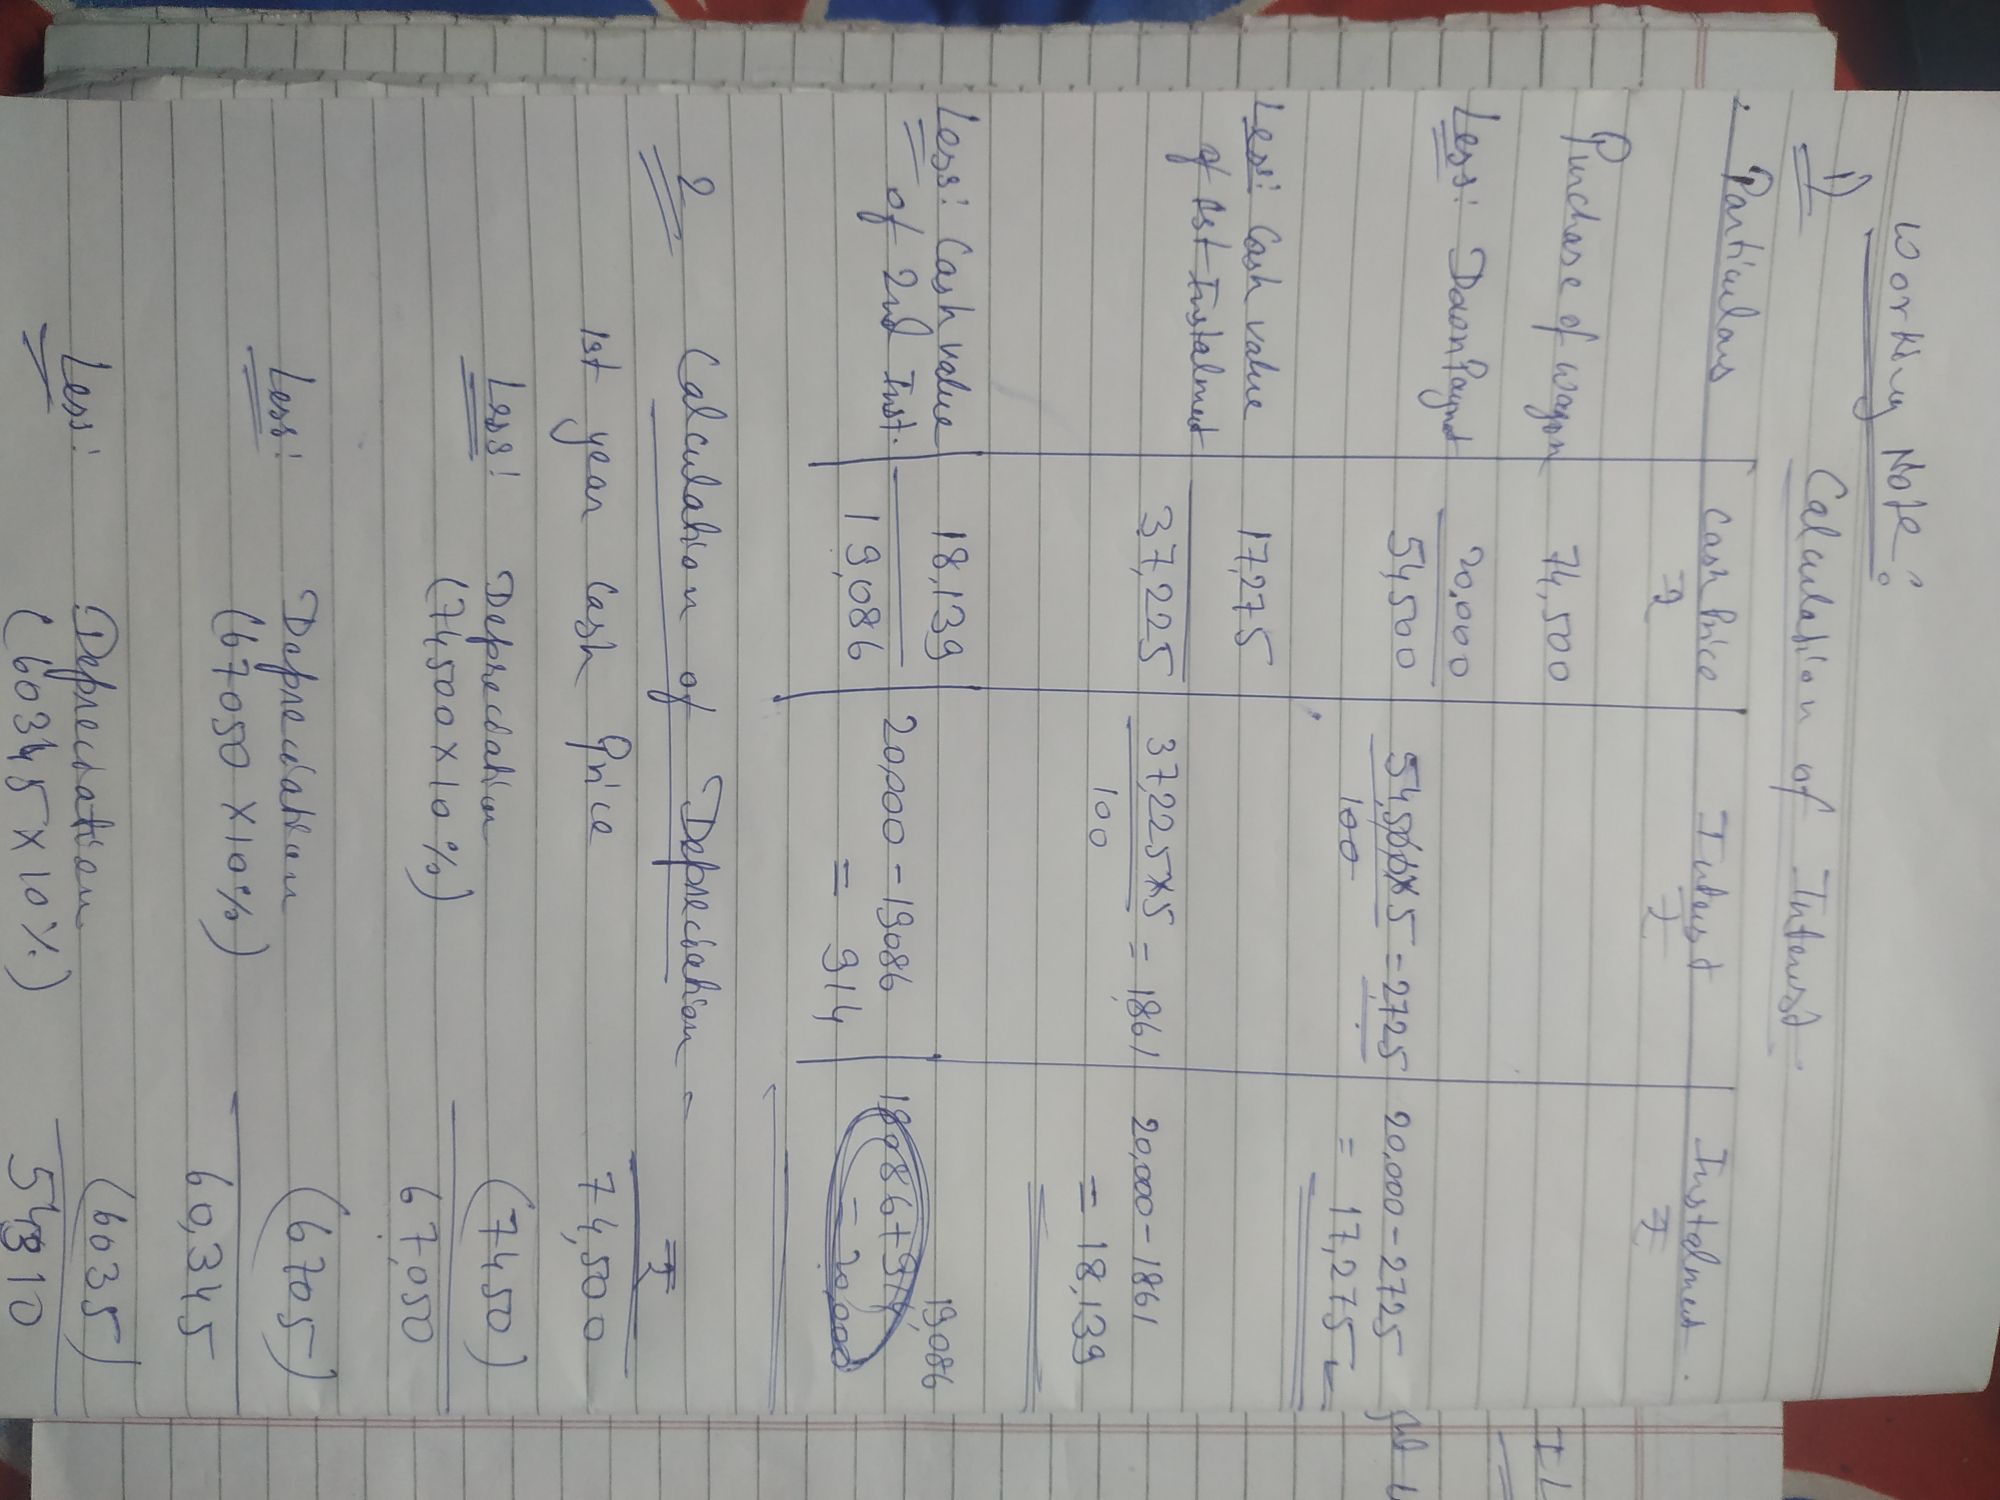 Working Note:
1) Calculation of Interest
Particulars Cash Price Interest Instalment
₹ ₹ ₹
Purchase of wagon 74,500
Less: Down Paymet 20,000
54,500 54,500×5 = 2,725 20,000 - 2725
100 = 17,275
Less: Cash value 17,275
of 1st Instalment
37,225 37,225×5 = 1,861 20,000 - 1861
100 = 18,139
Less: Cash value 18,139 19,086
of 2nd Inst. 19,086 20,000 - 19086 19086+914
= 914 = 20,000
2 Calculation of Depreciation -
₹
1st year Cash Price 74,500
Less: Depreciation (7450)
(74500×10%) 67,050
Less: Depreciation (6705)
(67050×10%) 60,345
Less: Depreciation (6035)
(60345×10%) 54310